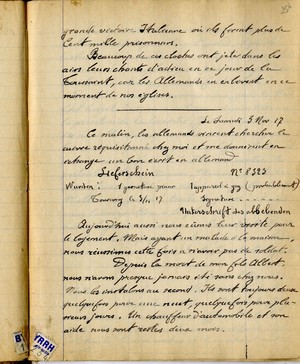 grande victoire Italienne où ils firent plus de
Cent mille prisonniers.
Beaucoup de ces cloches ont jeté dans les
airs leurs chants d'adieu en ce jour de la
Toussaint, car les Allemands en enlèvent en ce
moment de nos églises.
Le Samedi 3 Nov 17
Ce matin, les allemands vinrent chercher le
cuivre réquisitionné chez moi et me donnèrent en
échange un bon écrit en allemand
Lieferschein N° 8323
1 appareil à gaz (probablement)
Tourcoing le 3/11 17 Signature
Unterschrift des Abholenden
Aujourd'hui aussi nous eûmes leur visite pour
le logement. Mais ayant un malade à la maison,
nous réussîmes cette fois à n'avoir pas de soldat.
Depuis la mort de mon fils Albert,
nous n'avons presque jamais été sans chez nous.
Nous les installons au second. Ils sont toujours deux
quelquefois pour une nuit, quelquefois pour plu-
sieurs jours. Un chauffeur d'automobile et son
aide nous sont restés deux mois.